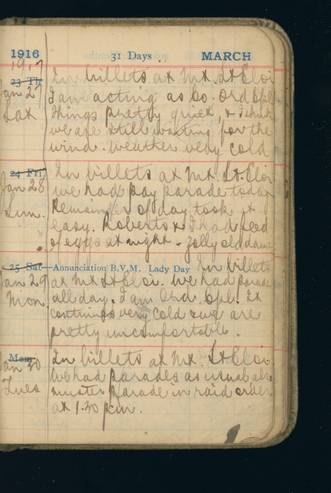 1916 31 Days MARCH
1917
23 Th In billets at Mt. St Eloi
Jan 27 I am acting as Co. Ord Cpl.
Sat Things pretty quiet, & I think
we are still waiting for the
wind. Weather very cold
24 Fri In billets at Mt. St. Eloi
Jan 28 we had pay parade today
Sun. Remainder of day took it
easy. Roberts & I had feed
of eggs at night. Jolly old dame
25 Sat Annunciation B.V.M. Lady Day In billets
Jan 29 at Mt St Eloi. We had parades
Mon all day. I am Ord. Cpl.
very cold and are
pretty uncomfortable.
Jan 30 In billets at Mt. St Eloi
Tues We had parades as usual also
muster parade in raid order
at 1.30 p.m.